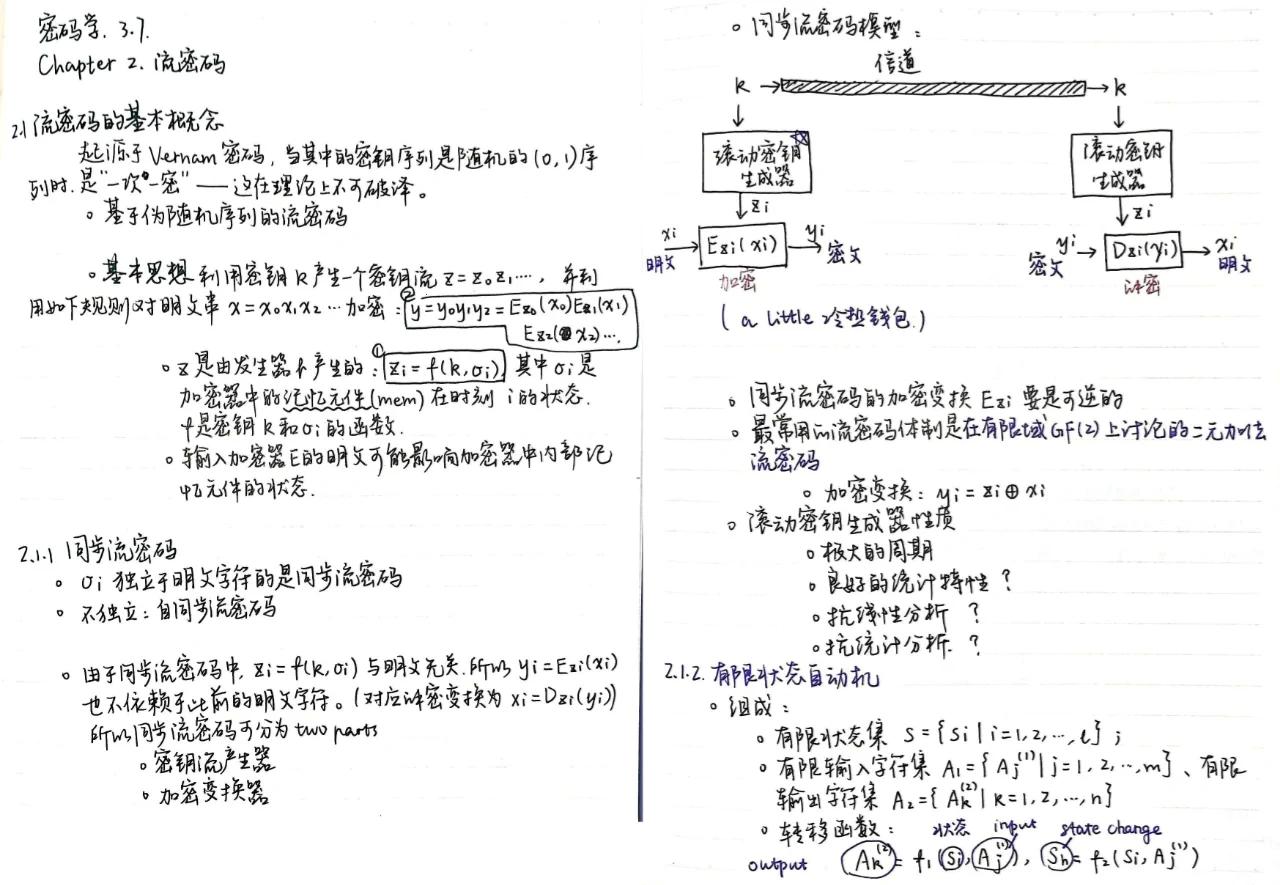 密码学. 3.7.
Chapter 2. 流密码
2.1 流密码的基本概念
起源于 Vernam 密码, 当其中的密钥序列是随机的 (0, 1) 序
列时, 是"一次一密" —— 这在理论上不可破译。
。基于伪随机序列的流密码
。基本思想 利用密钥 k 产生一个密钥流 z = z₀z₁····, 并利
用如下规则对明文串 x = x₀x₁x₂ ··· 加密: ② y = y₀y₁y₂ = Ez₀(x₀)Ez₁(x₁)
Ez₂(x₂)···.
。z 是由发生器 f 产生的: ① zᵢ = f(k, σᵢ), 其中 σᵢ 是
加密器中的记忆元件(mem) 在时刻 i 的状态.
f 是密钥 k 和 σᵢ 的函数.
。输入加密器 E 的明文可能影响加密器中内部记
忆元件的状态.
2.1.1 同步流密码
。σᵢ 独立于明文字符的是同步流密码
。不独立: 自同步流密码
。由于同步流密码中, zᵢ = f(k, σᵢ) 与明文无关. 所以 yᵢ = Ezᵢ(xᵢ)
也不依赖于此前的明文字符。(对应译密变换为 xᵢ = Dzᵢ(yᵢ))
所以同步流密码可分为 two parts
。密钥流产生器
。加密变换器
。同步流密码模型:
信道
k → → k
滚动密钥 滚动密钥
生成器 生成器
zᵢ zᵢ
xᵢ 明文 Ezᵢ(xᵢ) yᵢ 密文 yᵢ 密文 Dzᵢ(yᵢ) xᵢ 明文
加密 译密
( a little 冷热钱包.)
。同步流密码的加密变换 Ezᵢ 要是可逆的
。最常用的流密码体制是在有限域 GF(2) 上讨论的二元加法
流密码
。加密变换: yᵢ = zᵢ ⊕ xᵢ
。滚动密钥生成器性质
。极大的周期
。良好的统计特性 ?
。抗线性分析 ?
。抗统计分析. ?
2.1.2. 有限状态自动机
。组成:
。有限状态集 S = {Sᵢ | i = 1, 2, ..., l} ;
。有限输入字符集 A₁ = {Aⱼ⁽¹⁾ | j = 1, 2, ..., m} 、有限
输出字符集 A₂ = {Aₖ⁽²⁾ | k = 1, 2, ..., n}
。转移函数: 状态 input state change
output Aₖ⁽²⁾ = f₁(Sᵢ, Aⱼ⁽¹⁾), Sₕ = f₂(Sᵢ, Aⱼ⁽¹⁾)